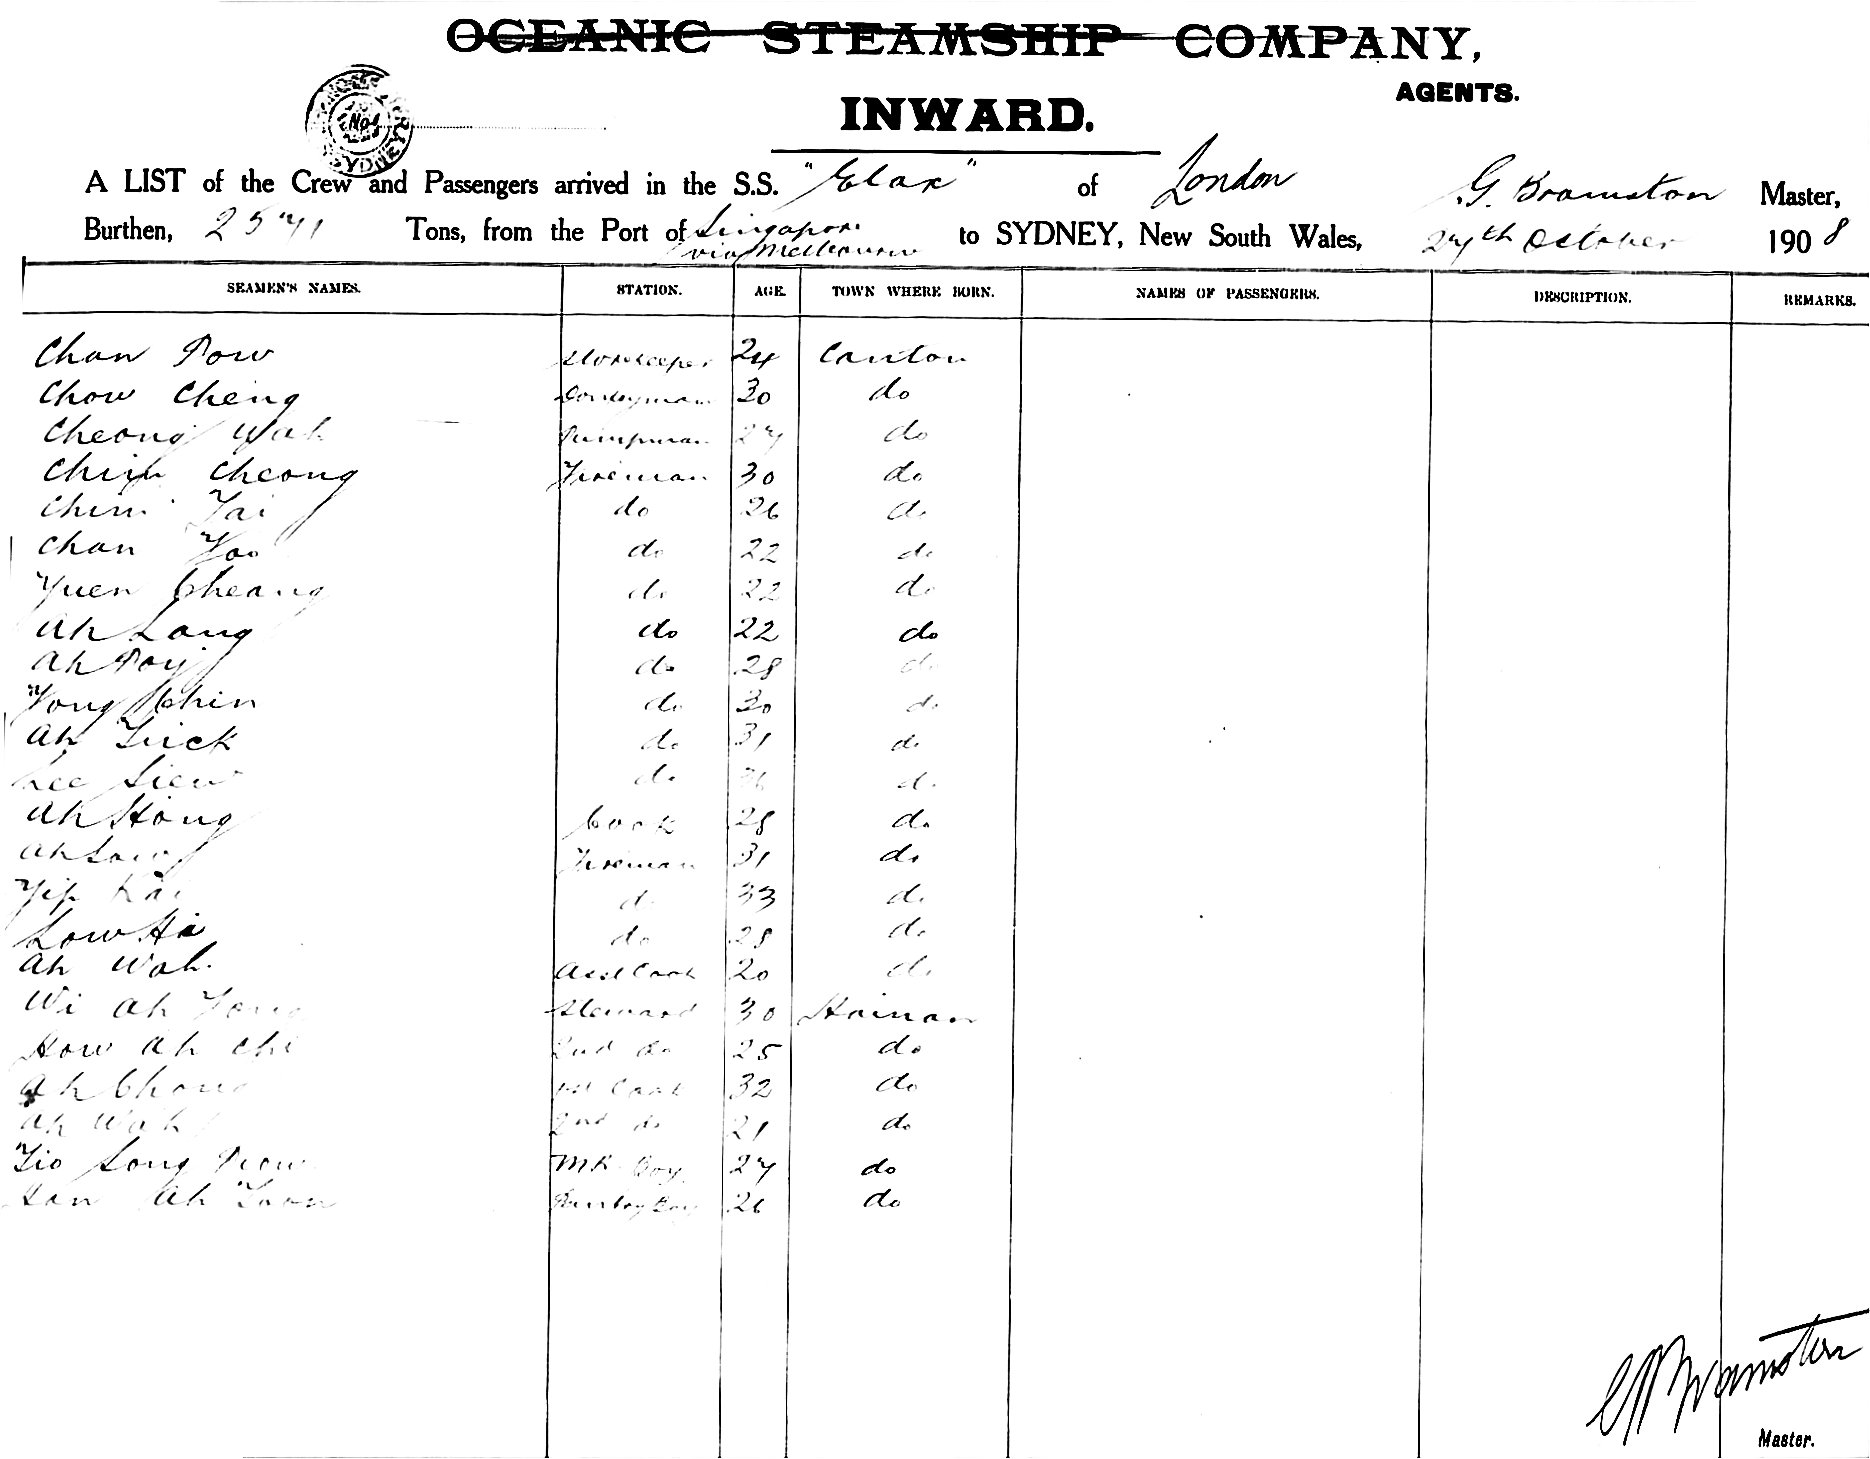 OCEANIC STEAMSHIP COMPANY,
AGENTS.
INWARD.
A LIST of the Crew and Passengers arrived in the S.S. "Elax" of London G. Bramston Master,
Burthen, 2571 Tons, from the Port of Singapore via Melbourne to SYDNEY, New South Wales, 27th October 1908
SEAMEN'S NAMES. STATION. AGE. TOWN WHERE BORN. NAMES OF PASSENGERS. DESCRIPTION. REMARKS.
Chan Pow Storekeeper 24 Canton
Chow Cheng Donkeyman 30 do
Cheong Wah Pumpman 27 do
Chin Cheong Fireman 30 do
Chim Tai do 26 do
Chan Yoo do 22 do
Yuen Cheang do 22 do
Ah Lang do 22 do
Ah Poy do 28 do
Yong Chin do 30 do
Ah Tuck do 31 do
Lee Siew do do
Ah Hong Cook 28 do
Ah Fireman 31 do
Yip Kai do 33 do
Low Hi do 28 do
Ah Wah. Asst Cook 20 do
Wi Ah Steward 30 Hainan
How Ah Chi 2nd do 25 do
Ah Chong Cook 32 do
Ah Wah 2nd do 21 do
Tio Song MR Boy 27 do
Han Ah Pantry Boy 26 do
G Bramston
Master.